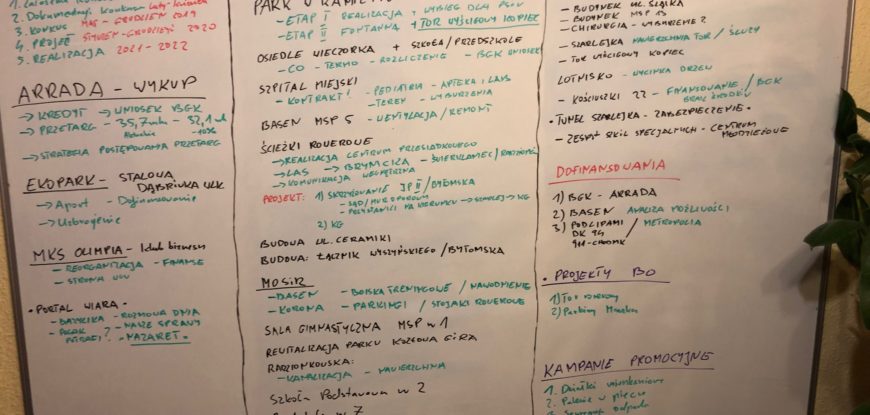 2. Dokumentacj
3. KONKURS MAJ - GRUDZIEŃ 2019
4. PROJEKT STYCZEŃ - GRUDZIEŃ 2020
5. REALIZACJA 2021 - 2022
ARRADA - WYKUP
→ KREDYT → WNIOSEK BGK
→ PRZETARG - 35,7 mln - 32,1 mln
-10%
→ STRATEGIA POSTĘPOWANIA PRZETARG
EKOPARK - STALOWA
DĄBRÓWKA WLK
→ Aport - Dofinansowanie
→ Uzbrojenie
MKS OLIMPIA - klub biznesu
- REORGANIZACJA - FINANSE
- STRONA WWW
• PORTAL WIARA •
- BAZYLIKA - ROZMOWA DNIA
? - NASZE SPRAWY
- NAZARET.
PARK W
- ETAP I REALIZACJA + WYBIEG DLA PSÓW
- ETAP II FONTANNA + TOR WYŚCIGOWY KOPIEC
OSIEDLE WIECZORKA + SZKOŁA / PRZEDSZKOLE
- CO - TERMO - ROZLICZENIE - BGK WNIOSEK
SZPITAL MIEJSKI
- KONTRAKT! - PEDIATRIA - APTEKA i LABS
- TEREN - WYBURZENIA
BASEN MSP 5 - WENTYLACJA / REMONT
ŚCIEŻKI ROWEROWE
→ REALIZACJA CENTRUM PRZESIADKOWEGO
→ LAS → BRYNICZA -
→ KOMUNIKACJA WEWNĘTRZNA
PROJEKT: 1) SKRZYŻOWANIE JP II / BYTOMSKA
- SĄD /
- PRZYSTANKI NA KIERUNKU → SZARLEJ → KG
2) KG
BUDOWA UL. CERAMIKI
BUDOWA: ŁĄCZNIK WYSZYŃSKIEGO / BYTOMSKA
MOSIR
- BASEN - BOISKA TRENINGOWE / NAWODNIENIE
- KORONA - PARKINGI / STOJAKI ROWEROWE
SALA GIMNASTYCZNA MSP w 1
REWITALIZACJA PARKU KOZŁOWA GÓRA
RADZIONKOWSKA:
- KANALIZACJA - NAWIERZCHNIA
Szkoła Podstawowa w 2
w 7
- BUDYNEK UL.
- BUDYNEK MSP 13
- CHIRURGIA - WYBURZENIE ?
- SZARLEJKA NAWIERZCHNIA TOR / ŚLUZY
- TOR WYŚCIGOWY KOPIEC
LOTNISKO - WYCINKA DRZEW
- KOŚCIUSZKI 22 - FINANSOWANIE / BGK
BRAK ŚRODKÓW
• TUNEL SZARLEJKA - ZABEZPIECZENIE •
- ZESPÓŁ SZKÓŁ SPECJALNYCH - CENTRUM
MŁODZIEŻOWE
DOFINANSOWANIA
1) BGK - ARRADA
2) BASEN ANALIZA MOŻLIWOŚCI
3) PODLIPAMI / METROPOLIA
DK 94
911 -
• PROJEKTY BO
1) Tor
2) Parking
KAMPANIE PROMOCYJNE
1. Działki
2. Palenie w piecu
3. odpadu